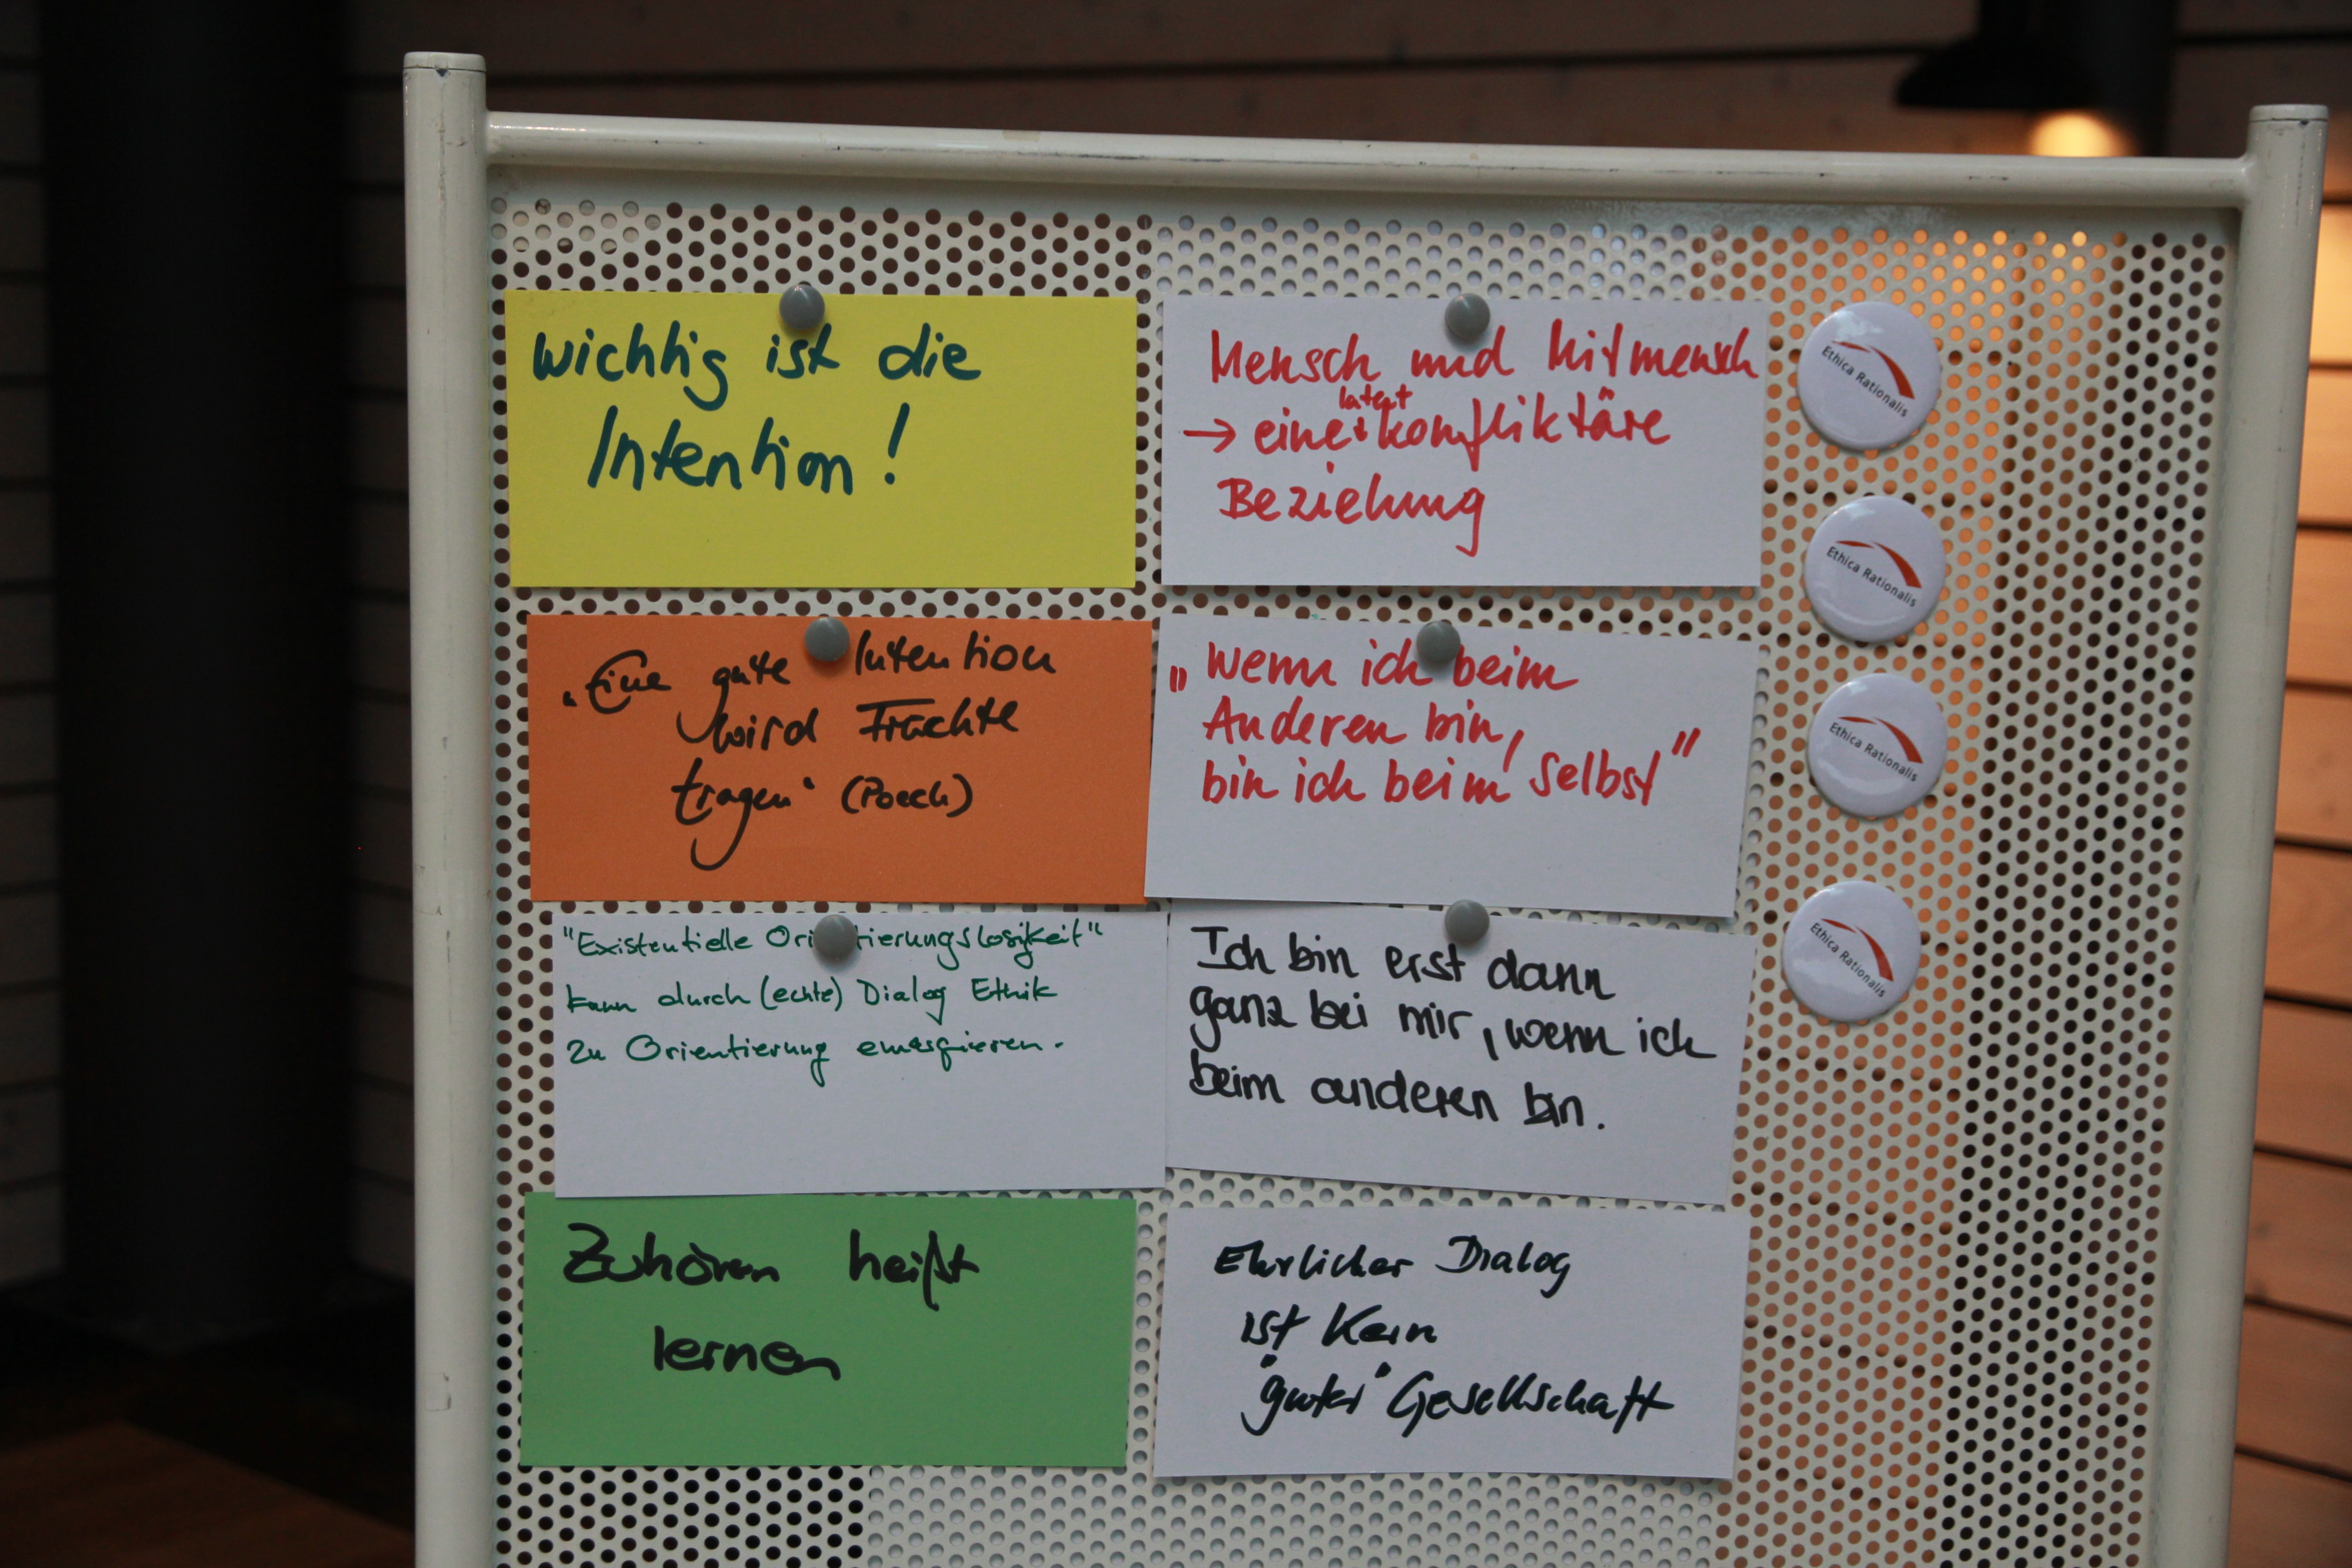 wichtig ist die
Intention!
„Eine gute Intention
wird Früchte
tragen“ (Poech)
"Existentielle Orientierungslosigkeit"
kann durch (echte) Dialog Ethik
zu Orientierung emergieren.
Zuhören heißt
lernen
Mensch und Mitmensch
latent
→ eine konfliktäre
Beziehung
„Wenn ich beim
Anderen bin,
bin ich beim Selbst"
Ich bin erst dann
ganz bei mir, wenn ich
beim anderen bin.
Ehrlicher Dialog
ist kein
"guter" Gesellschaft
Ethica Rationalis
Ethica Rationalis
Ethica Rationalis
Ethica Rationalis